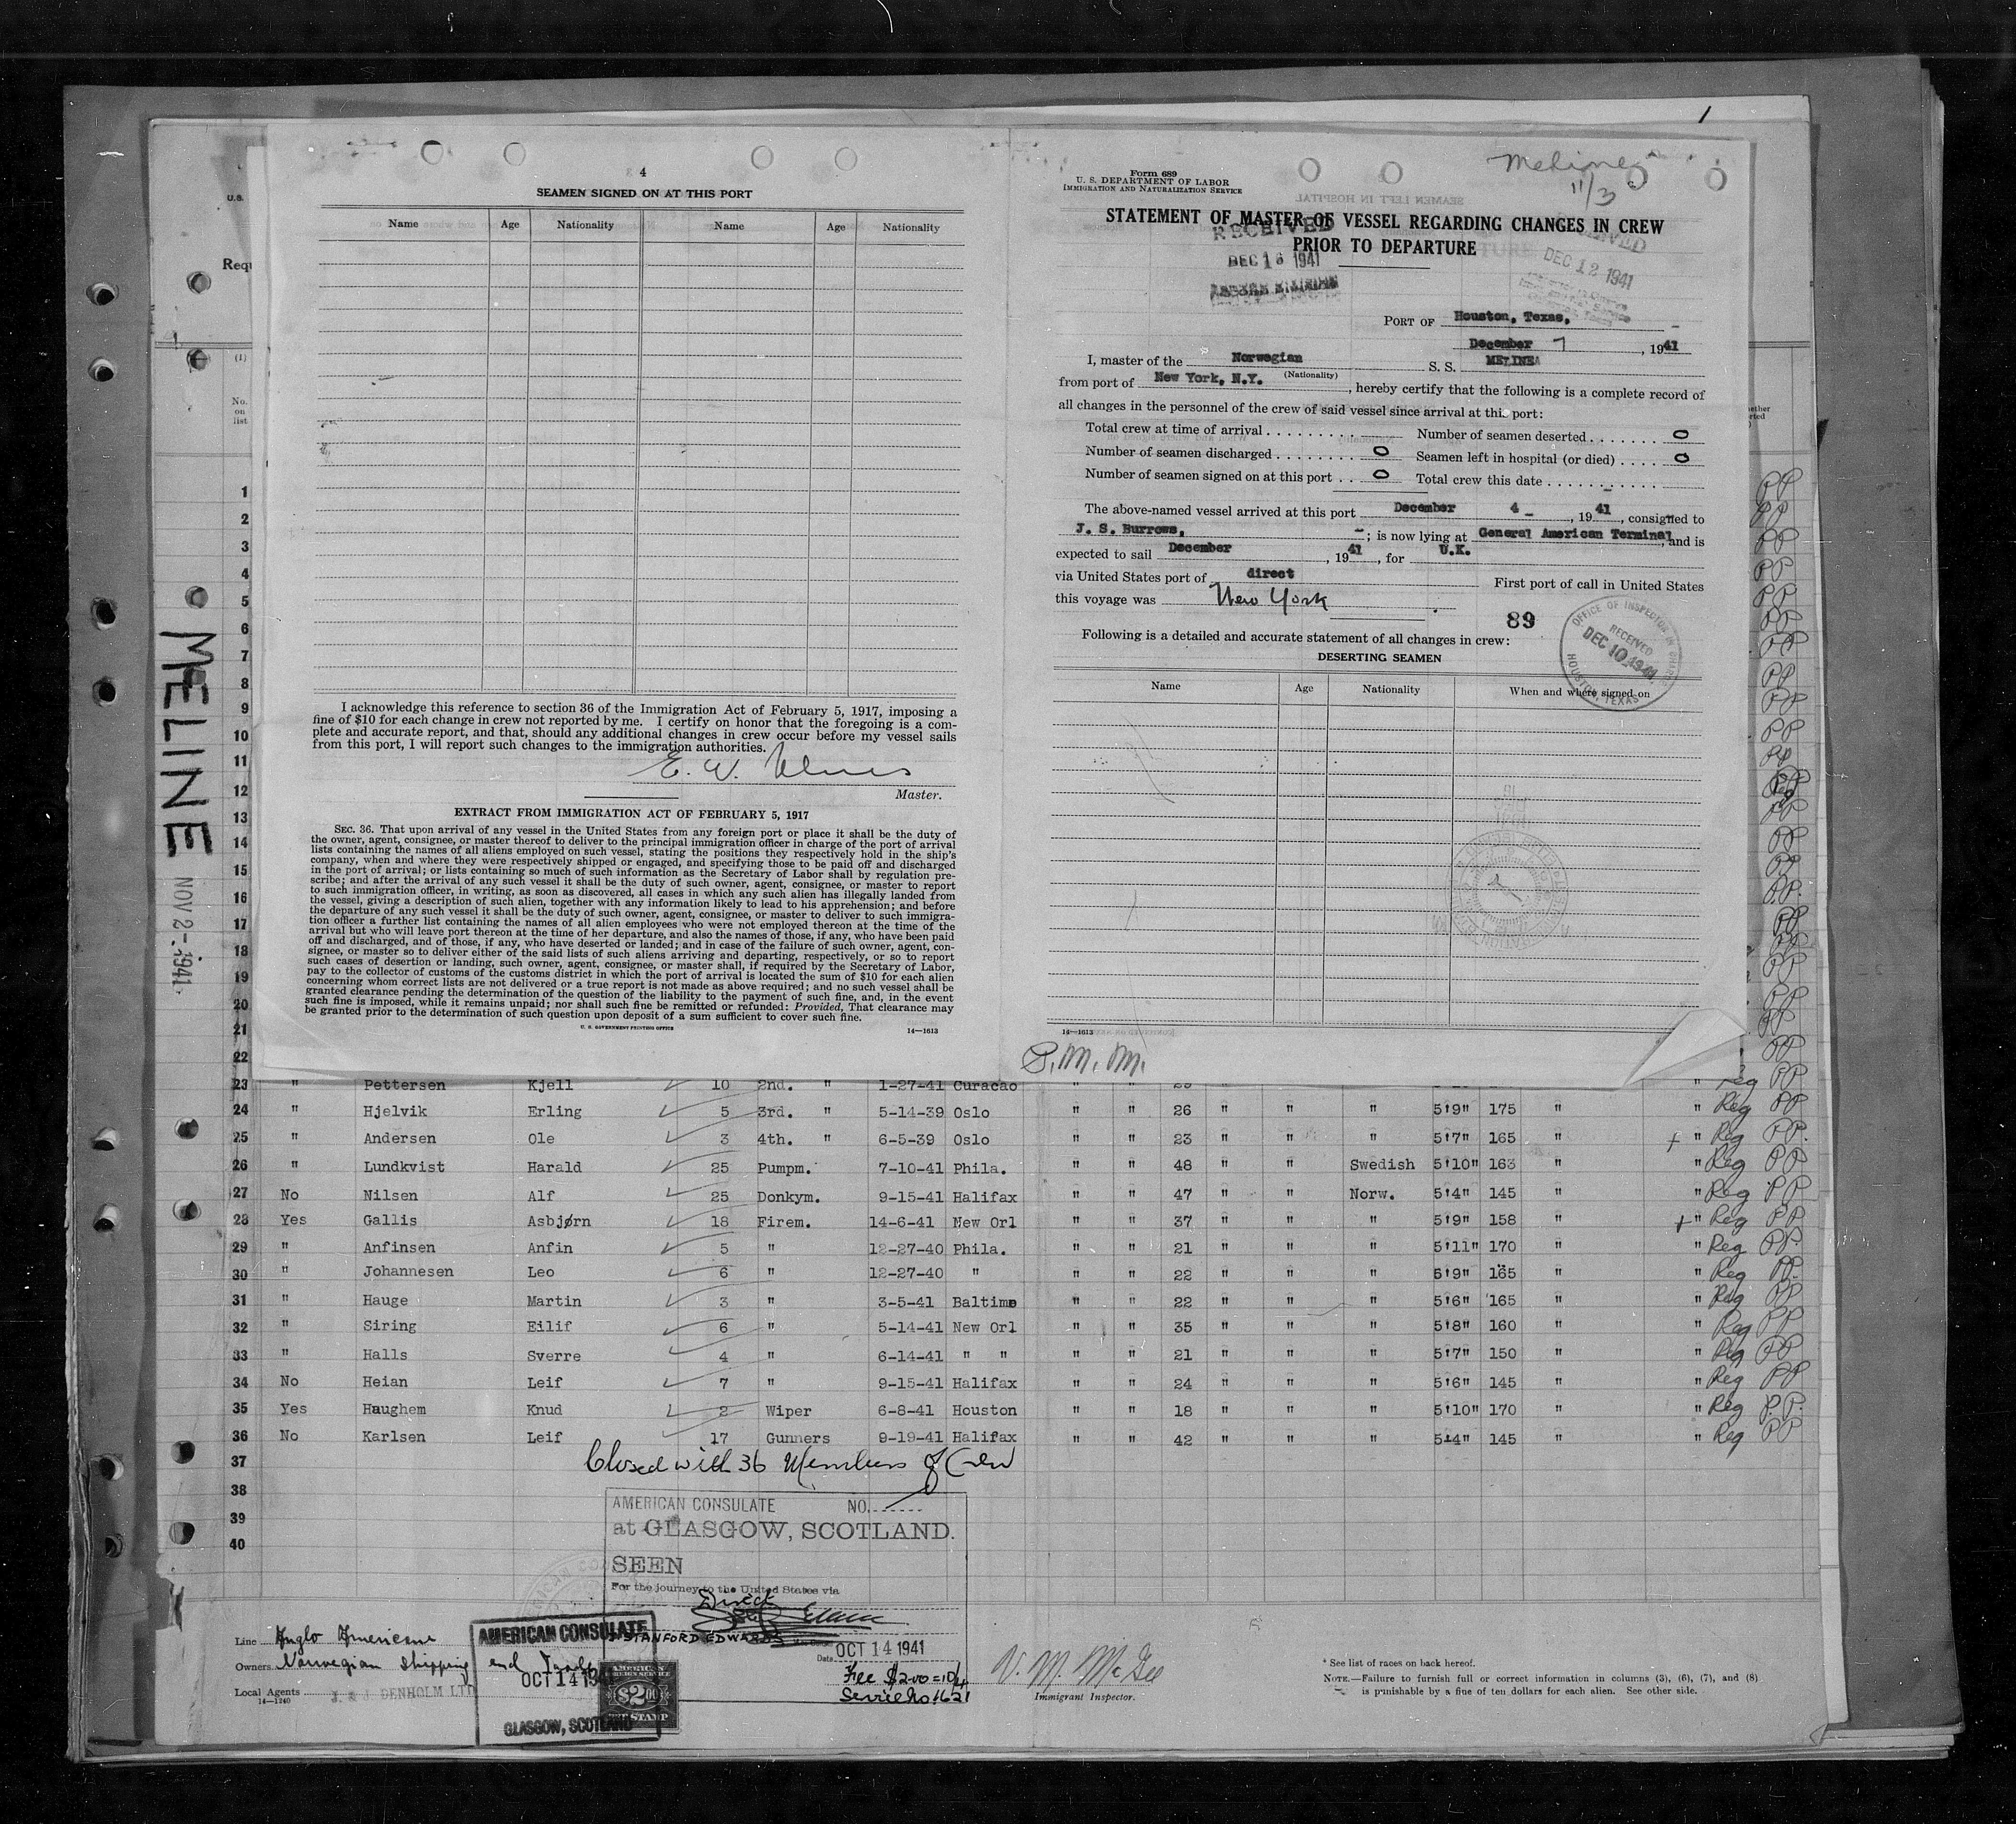 1
4
SEAMEN SIGNED ON AT THIS PORT
Name Age Nationality Name Age Nationality
I acknowledge this reference to section 36 of the Immigration Act of February 5, 1917, imposing a
fine of $10 for each change in crew not reported by me. I certify on honor that the foregoing is a com-
plete and accurate report, and that, should any additional changes in crew occur before my vessel sails
from this port, I will report such changes to the immigration authorities.
E. W.
Master.
EXTRACT FROM IMMIGRATION ACT OF FEBRUARY 5, 1917
SEC. 36. That upon arrival of any vessel in the United States from any foreign port or place it shall be the duty of
the owner, agent, consignee, or master thereof to deliver to the principal immigration officer in charge of the port of arrival
lists containing the names of all aliens employed on such vessel, stating the positions they respectively hold in the ship's
company, when and where they were respectively shipped or engaged, and specifying those to be paid off and discharged
in the port of arrival; or lists containing so much of such information as the Secretary of Labor shall by regulation pre-
scribe; and after the arrival of any such vessel it shall be the duty of such owner, agent, consignee, or master to report
to such immigration officer, in writing, as soon as discovered, all cases in which any such alien has illegally landed from
the vessel, giving a description of such alien, together with any information likely to lead to his apprehension; and before
the departure of any such vessel it shall be the duty of such owner, agent, consignee, or master to deliver to such immigra-
tion officer a further list containing the names of all alien employees who were not employed thereon at the time of the
arrival but who will leave port thereon at the time of her departure, and also the names of those, if any, who have been paid
off and discharged, and of those, if any, who have deserted or landed; and in case of the failure of such owner, agent, con-
signee, or master so to deliver either of the said lists of such aliens arriving and departing, respectively, or so to report
such cases of desertion or landing, such owner, agent, consignee, or master shall, if required by the Secretary of Labor,
pay to the collector of customs of the customs district in which the port of arrival is located the sum of $10 for each alien
concerning whom correct lists are not delivered or a true report is not made as above required; and no such vessel shall be
granted clearance pending the determination of the question of the liability to the payment of such fine, and, in the event
such fine is imposed, while it remains unpaid; nor shall such fine be remitted or refunded: Provided, That clearance may
be granted prior to the determination of such question upon deposit of a sum sufficient to cover such fine.
U. S. GOVERNMENT PRINTING OFFICE 14—1613
Form 689
U. S. DEPARTMENT OF LABOR
IMMIGRATION AND NATURALIZATION SERVICE
Melinea
11/3
STATEMENT OF MASTER OF VESSEL REGARDING CHANGES IN CREW
PRIOR TO DEPARTURE
RECEIVED
DEC 16 1941
RECEIVED
DEC 12 1941
PORT OF Houston, Texas,
December 7, 1941
I, master of the Norwegian S. S. MELINEA
(Nationality)
from port of New York, N.Y., hereby certify that the following is a complete record of
all changes in the personnel of the crew of said vessel since arrival at this port:
Total crew at time of arrival Number of seamen deserted 0
Number of seamen discharged 0 Seamen left in hospital (or died) 0
Number of seamen signed on at this port 0 Total crew this date
The above-named vessel arrived at this port December 4, 1941, consigned to
J. S. Burrows, ; is now lying at General American Terminal, and is
expected to sail December, 1941, for U.K.
via United States port of direct First port of call in United States
this voyage was New York
89
OFFICE OF INSPECTOR IN CHARGE
RECEIVED
DEC 10 1941
HOUSTON, TEXAS
Following is a detailed and accurate statement of all changes in crew:
DESERTING SEAMEN
Name Age Nationality When and where signed on
14—1613
P.M.M.
MELINE
NOV 2- 1941
U.S.
(1)
No.
on
list
1 PP
2 PP
3 PP
4 PP
5 PP
6 PP
7 PP
8 PP
9 PP
10 PP
11 PP
12 PP
13 PP
14 PP
15 PP
16 PP
17 PP
18 PP
19 PP
20 PP
21 PP
22 PP
23 " Pettersen Kjell 10 2nd. " 1-27-41 Curacao " " " " Reg PP
24 " Hjelvik Erling 5 3rd. " 5-14-39 Oslo " " 26 " " " 5'9" 175 " " Reg PP
25 " Andersen Ole 3 4th. " 6-5-39 Oslo " " 23 " " " 5'7" 165 " + " Reg PP.
26 " Lundkvist Harald 25 Pumpm. 7-10-41 Phila. " " 48 " " Swedish 5'10" 163 " " Reg PP
27 No Nilsen Alf 25 Donkym. 9-15-41 Halifax " " 47 " " Norw. 5'4" 145 " " Reg PP
28 Yes Gallis Asbjørn 18 Firem. 14-6-41 New Orl " " 37 " " " 5'9" 158 " + " Reg PP
29 " Anfinsen Anfin 5 " 12-27-40 Phila. " " 21 " " " 5'11" 170 " " Reg PP.
30 " Johannesen Leo 6 " 12-27-40 " " " 22 " " " 5'9" 165 " " Reg PP.
31 " Hauge Martin 3 " 3-5-41 Baltime " " 22 " " " 5'6" 165 " " Reg PP
32 " Siring Eilif 6 " 5-14-41 New Orl " " 35 " " " 5'8" 160 " " Reg PP
33 " Halls Sverre 4 " 6-14-41 " " " " 21 " " " 5'7" 150 " " Reg PP
34 No Heian Leif 7 " 9-15-41 Halifax " " 24 " " " 5'6" 145 " " Reg PP
35 Yes Haughem Knud 2 Wiper 6-8-41 Houston " " 18 " " " 5'10" 170 " " Reg PP.
36 No Karlsen Leif 17 Gunners 9-19-41 Halifax " " 42 " " " 5'4" 145 " " Reg PP
37
Closed with 36 Members of Crew
38
39
40
AMERICAN CONSULATE NO.
at GLASGOW, SCOTLAND.
SEEN
For the journey to the United States via
Direct
STANFORD EDWARDS
Date OCT 14 1941
Fee $2.00 = 10/4
Service No 1621
Line Anglo American
Owners Norwegian Shipping and
Local Agents J. & J. DENHOLM LTD
14—1240
AMERICAN CONSULATE
OCT 14 19
GLASGOW, SCOTLAND
AMERICAN
FOREIGN SERVICE
$2.00
FEE STAMP
V. M. McGee
Immigrant Inspector.
* See list of races on back hereof.
NOTE.—Failure to furnish full or correct information in columns (3), (6), (7), and (8)
is punishable by a fine of ten dollars for each alien. See other side.